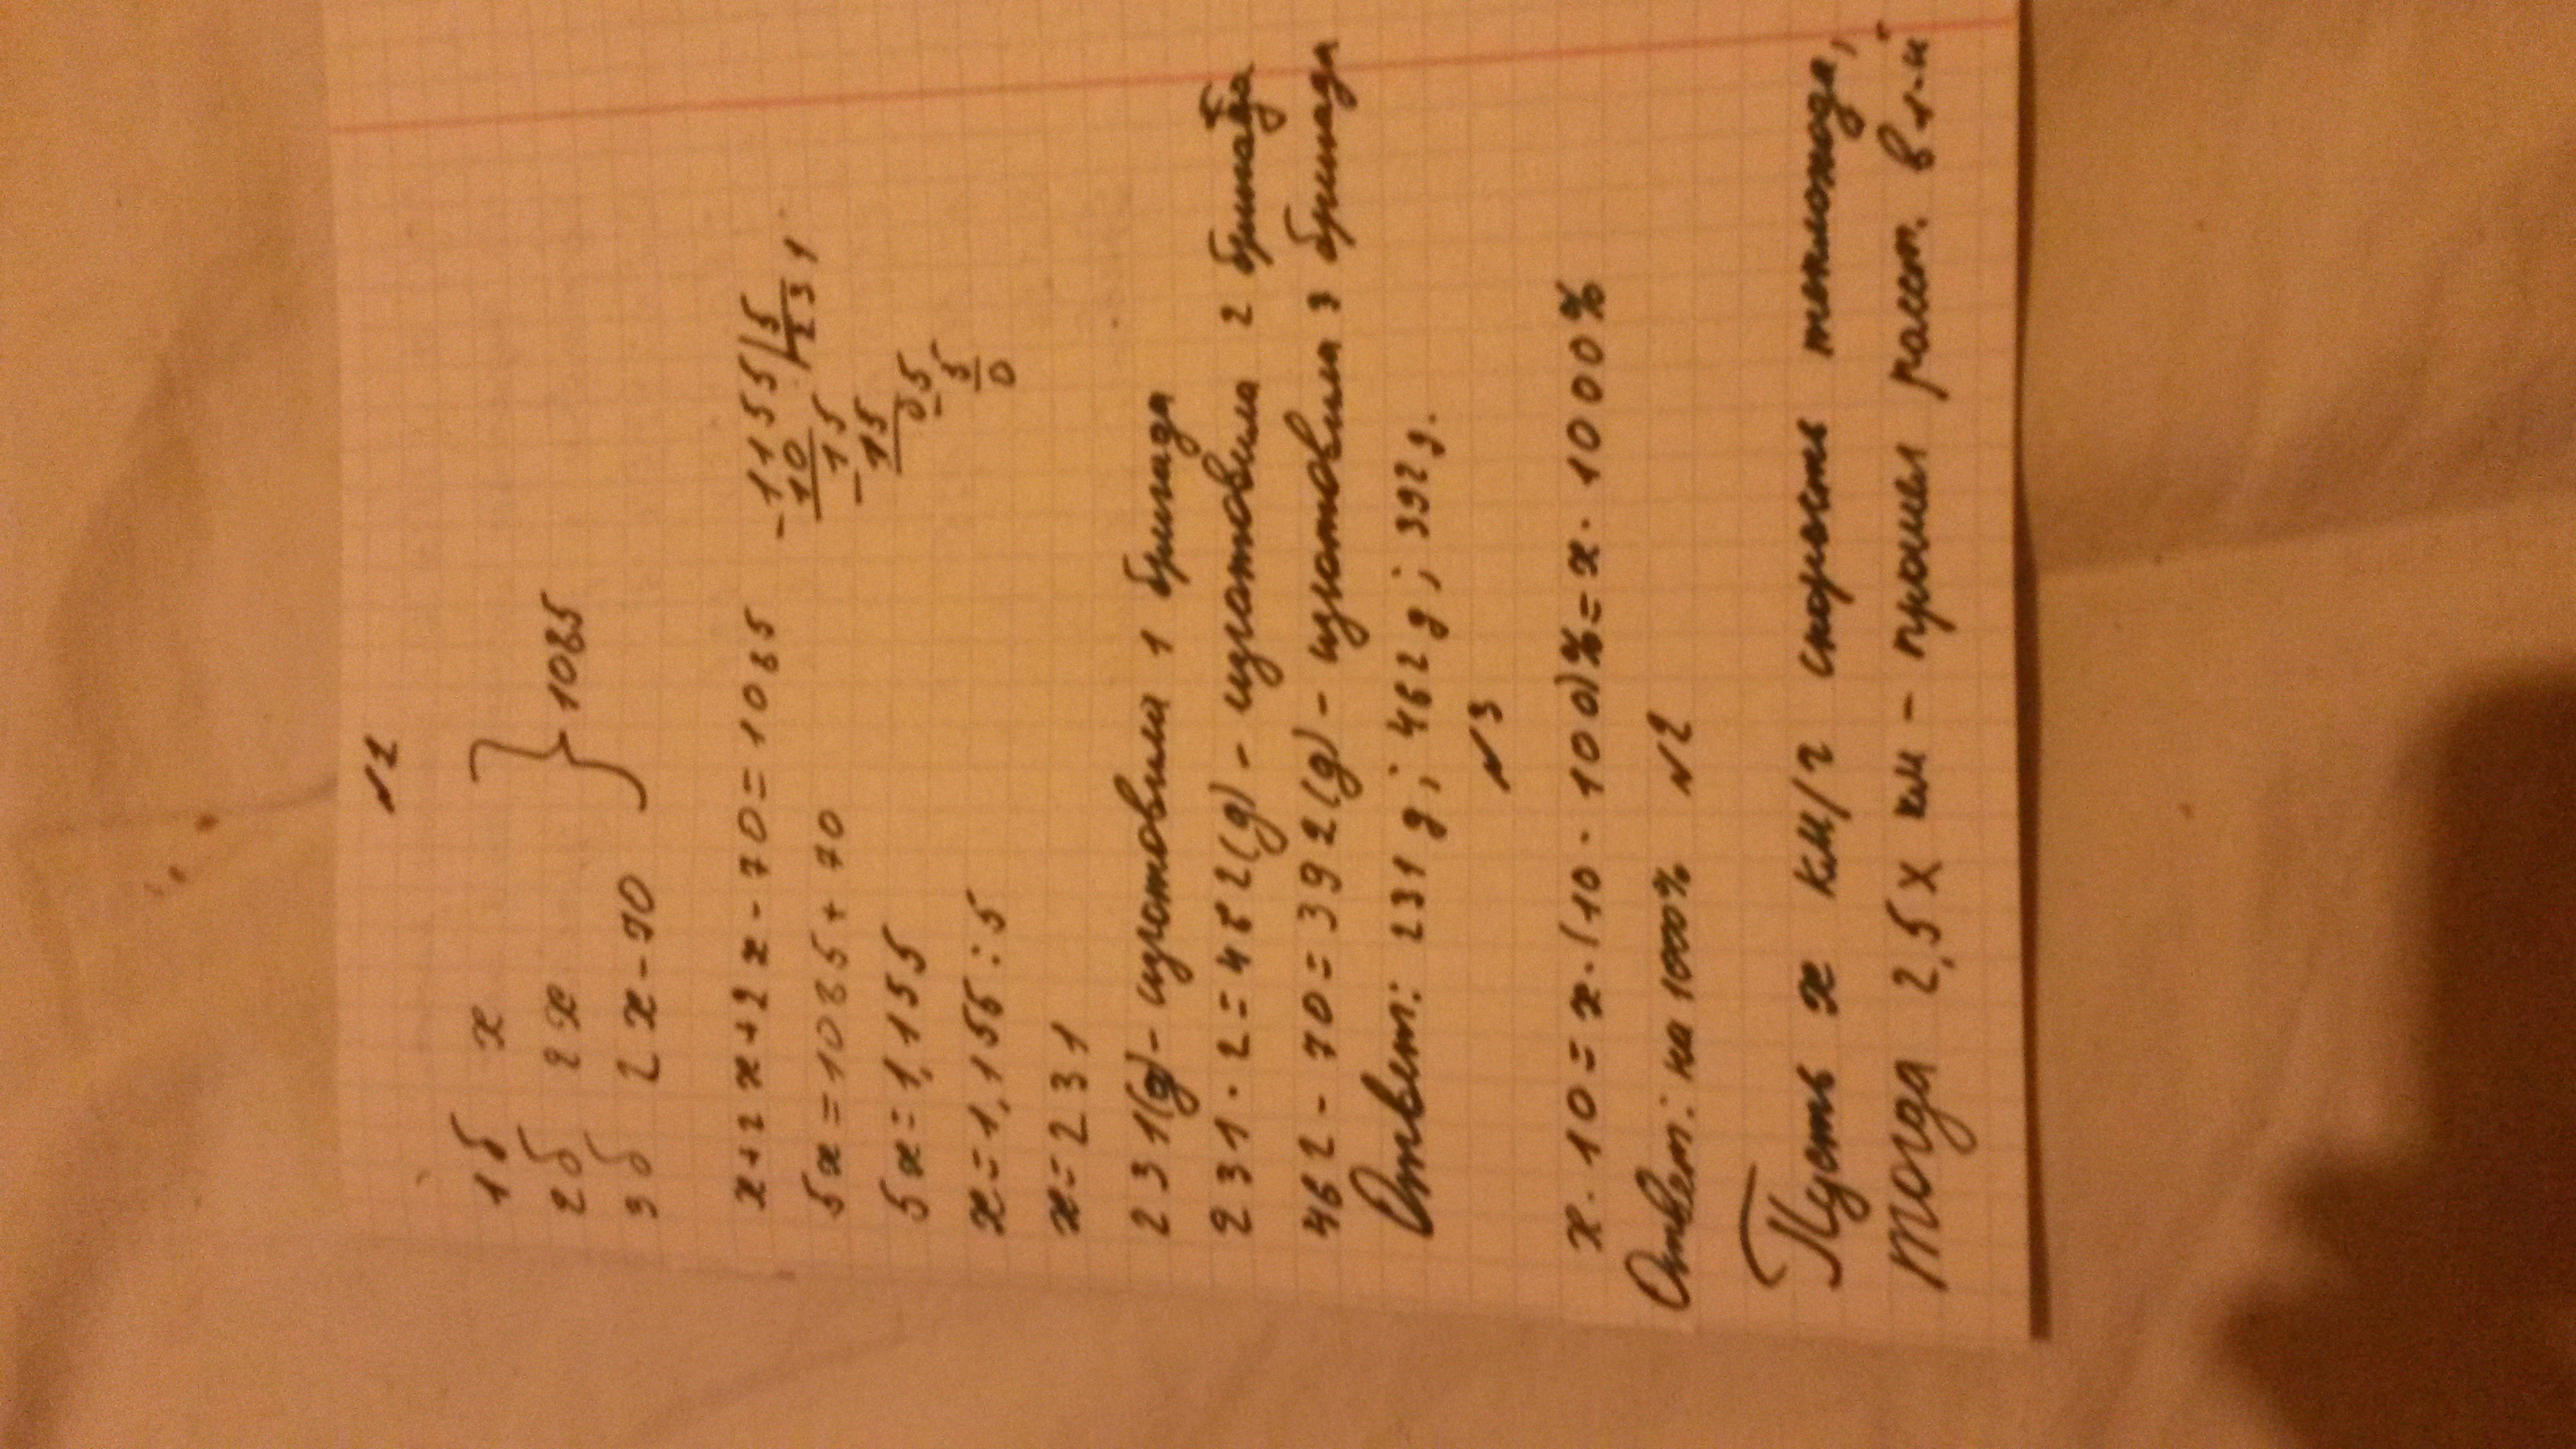 №1
1б x
2б 2x } 1085
3б 2x-70
x+2x+2x-70=1085
5x=1085+70
5x=1,155
x=1,155:5
x=231
-1155|5
10 |231
-15
15
05
-5
0
231(д)-изготовила 1 бригада
231·2=462(д)-изготовила 2 бригада
462-70=392(д)-изготовила 3 бригада
Ответ: 231д; 462д; 392д.
№3
x·10=x·(10·100)%=x·1000%
Ответ: на 1000% №2
Пусть x км/ч скорость теплохода,
тогда 2,5x км - прошел расст. в 1-й